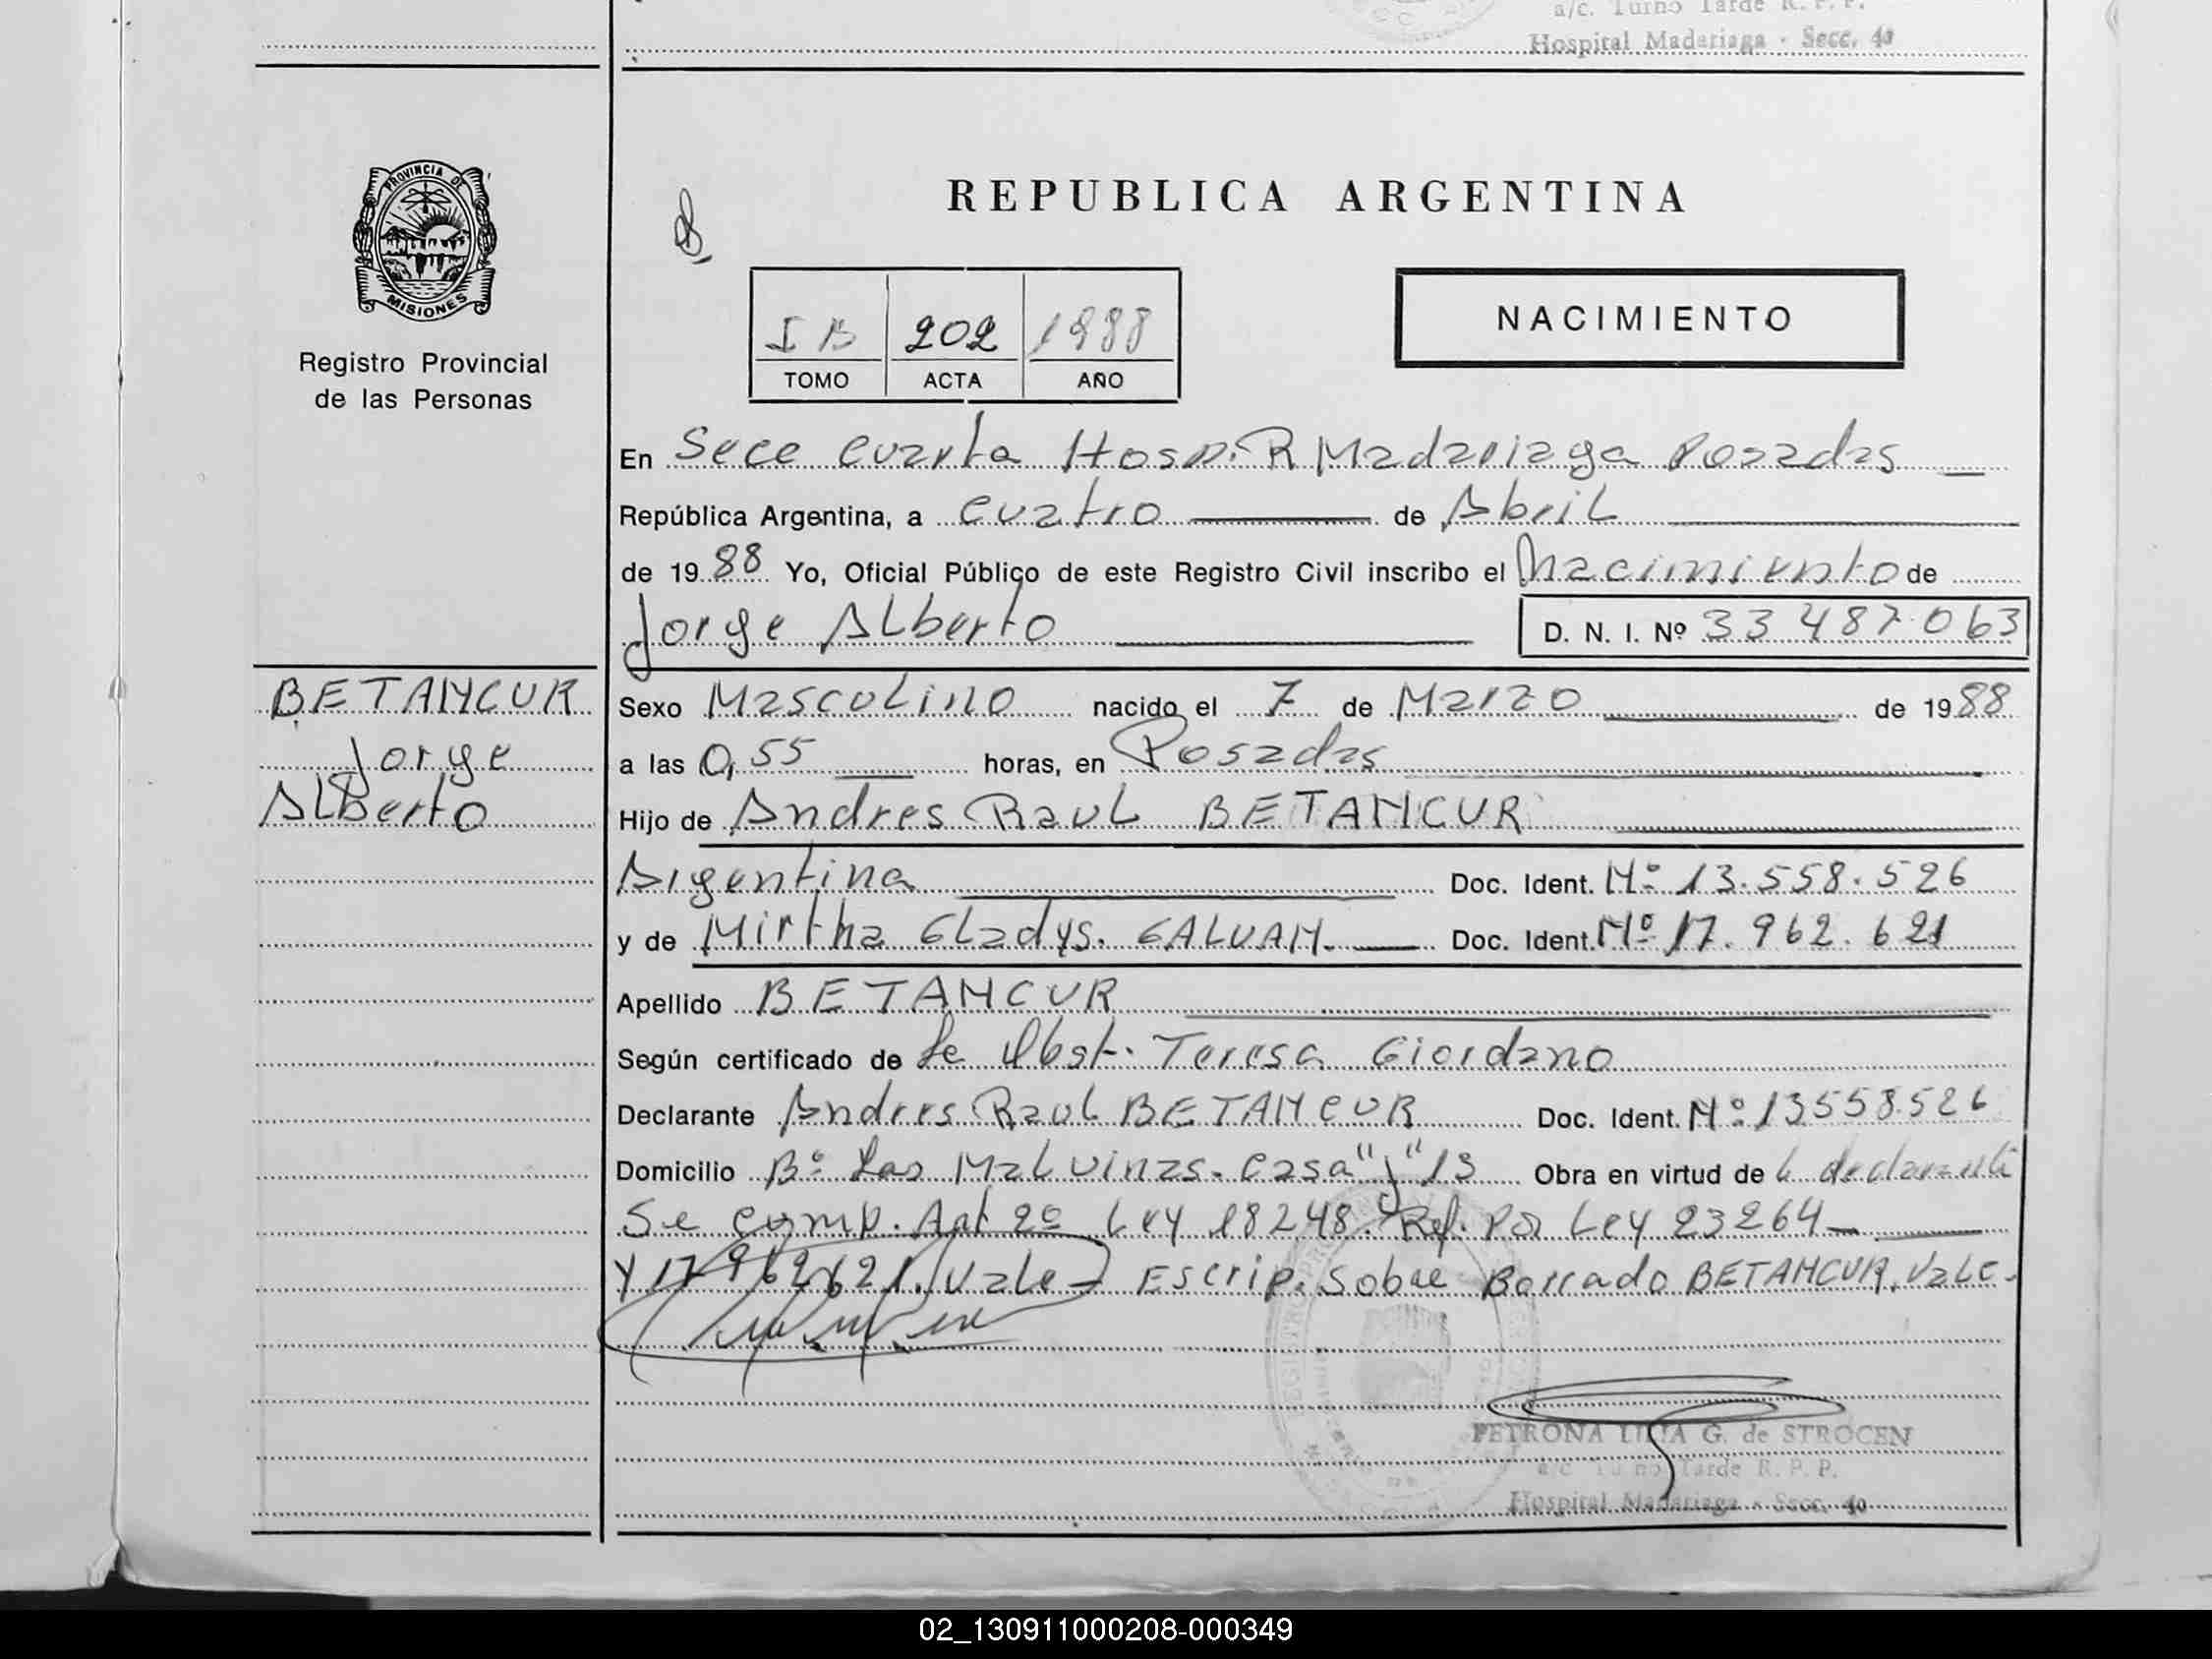 a/c. Turno Tarde R. P. P.
Hospital Madariaga - Secc. 4a
PROVINCIA DE
MISIONES
Registro Provincial
de las Personas
REPUBLICA ARGENTINA
I B 202 1988
TOMO ACTA AÑO
NACIMIENTO
En Secc Cuarta Hosp. R Madariaga Posadas
República Argentina, a cuatro de Abril
de 1988 Yo, Oficial Público de este Registro Civil inscribo el Nacimiento de
Jorge Alberto D. N. I. Nº 33 487.063
BETANCUR
Jorge
Alberto
Sexo Masculino nacido el 7 de Marzo de 1988
a las 0,55 horas, en Posadas
Hijo de Andres Raul BETANCUR
Argentina Doc. Ident. Nº 13.558.526
y de Mirtha Gladys. GALVAN. Doc. Ident. Nº 17.962.621
Apellido BETANCUR
Según certificado de la Obst. Teresa Giordano
Declarante Andres Raul BETANCUR Doc. Ident. Nº 13558.526
Domicilio Bº Las Malvinas. Casa "J" 13 Obra en virtud de
Se comp. Art 2º Ley 18248. Ref. Por Ley 23264
Y 17962621. Vale Escrip. Sobre Borrado BETANCUR. Vale.
PETRONA G. de STROCEN
a/c Turno Tarde R. P. P.
Hospital Madariaga - Secc. 4a
02_130911000208-000349